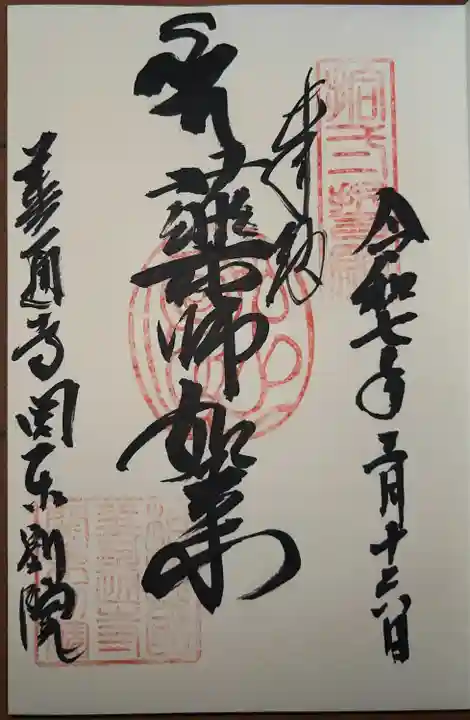 令和七年三月十六日
奉拝
薬師如来
善通寺関東別院